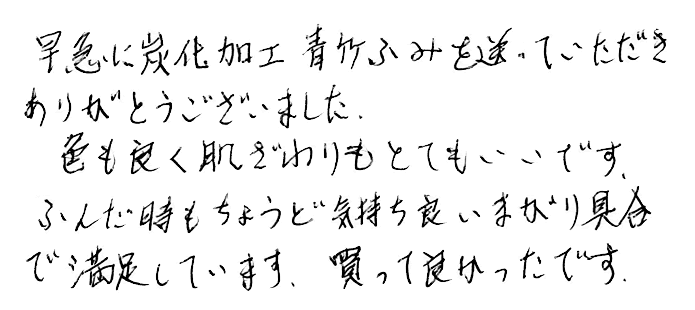 早急に炭化加工青竹ふみを送っていただき
ありがとうございました.
色も良く肌ざわりもとてもいいです.
ふんだ時もちょうど気持ち良いまがり具合
で満足しています. 買って良かったです.